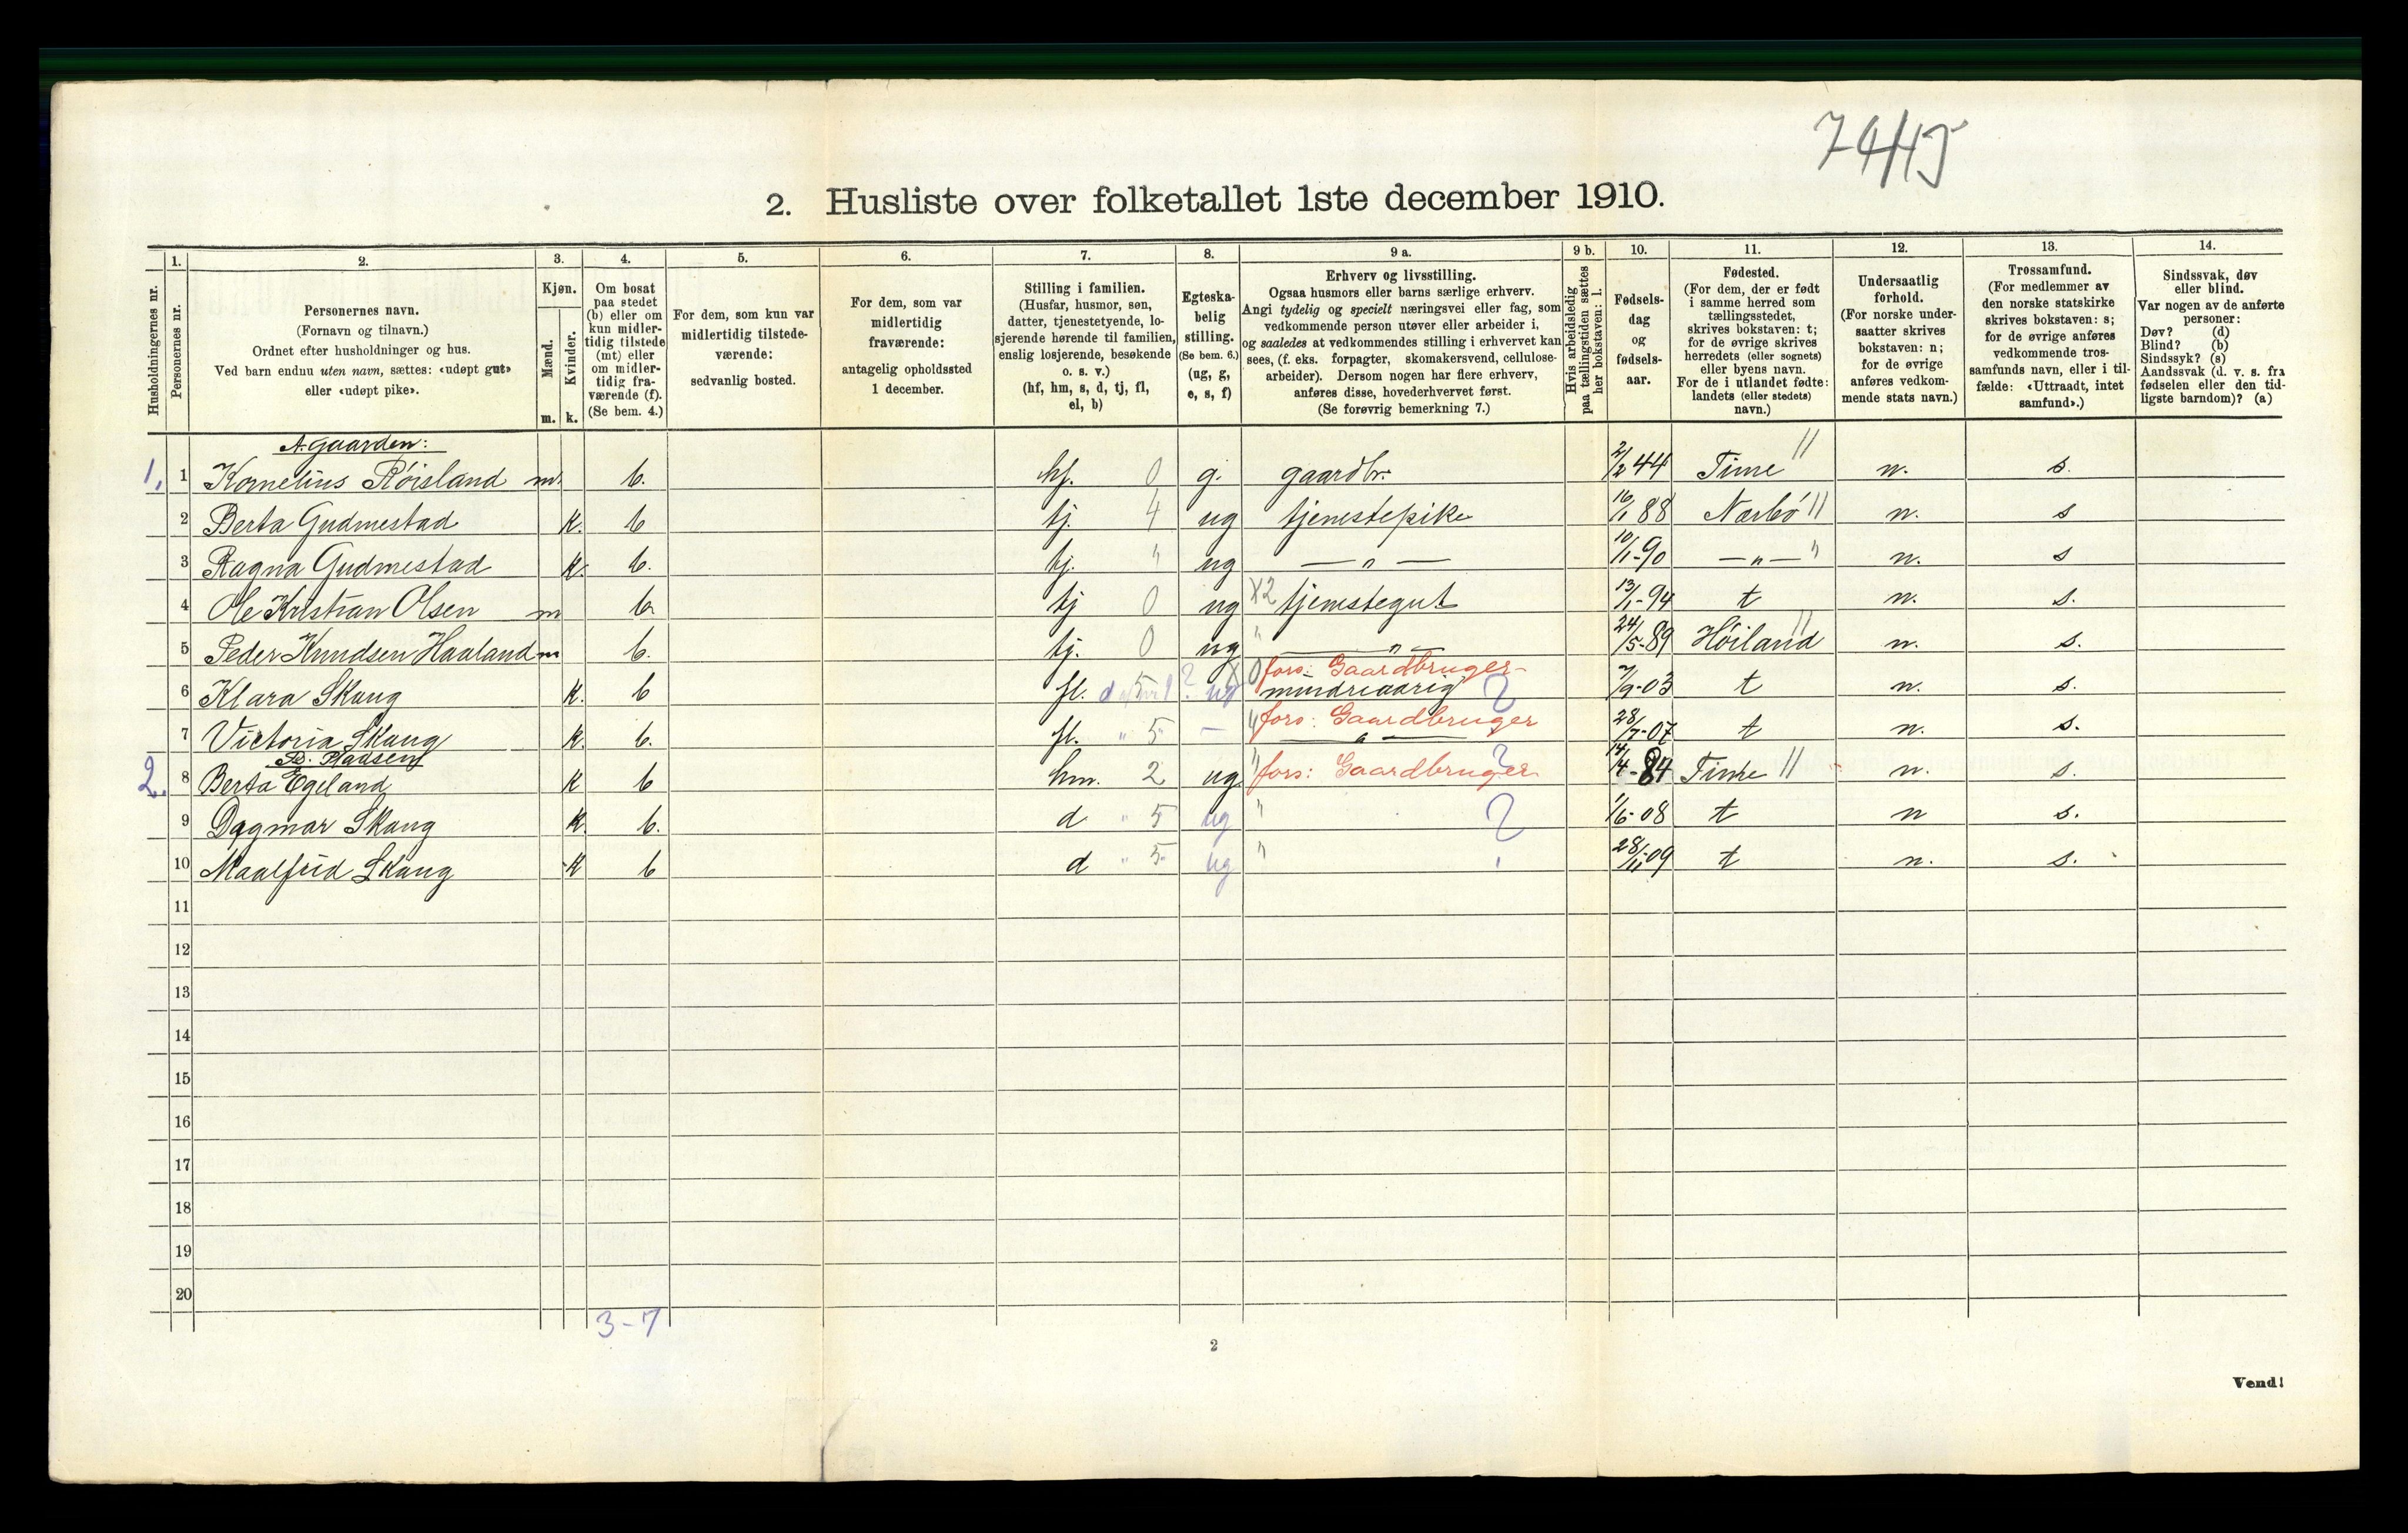 7445
2. Husliste over folketallet 1ste december 1910.
Husholdningernes nr.
1.
Personernes nr.
2.
Personernes navn.
(Fornavn og tilnavn.)
Ordnet efter husholdninger og hus.
Ved barn endnu uten navn, sættes: «udøpt gut»
eller «udøpt pike».
3.
Kjøn.
Mænd.
Kvinder.
m. k.
4.
Om bosat
paa stedet
(b) eller om
kun midler-
tidig tilstede
(mt) eller
om midler-
tidig fra-
værende (f).
(Se bem. 4.)
5.
For dem, som kun var
midlertidig tilstede-
værende:
sedvanlig bosted.
6.
For dem, som var
midlertidig
fraværende:
antagelig opholdssted
1 december.
7.
Stilling i familien.
(Husfar, husmor, søn,
datter, tjenestetyende, lo-
sjerende hørende til familien,
enslig losjerende, besøkende
o. s. v.)
(hf, hm, s, d, tj, fl,
el, b)
8.
Egteska-
belig
stilling.
(Se bem. 6.)
(ug, g,
e, s, f)
9 a.
Erhverv og livsstilling.
Ogsaa husmors eller barns særlige erhverv.
Angi tydelig og specielt næringsvei eller fag, som
vedkommende person utøver eller arbeider i,
og saaledes at vedkommendes stilling i erhvervet kan
sees, (f. eks. forpagter, skomakersvend, cellulose-
arbeider). Dersom nogen har flere erhverv,
anføres disse, hovederhvervet først.
(Se forøvrig bemerkning 7.)
9 b.
Hvis arbeidsledig
paa tællingstiden sættes
her bokstaven: l.
10.
Fødsels-
dag
og
fødsels-
aar.
11.
Fødested.
(For dem, der er født
i samme herred som
tællingsstedet,
skrives bokstaven: t;
for de øvrige skrives
herredets (eller sognets)
eller byens navn.
For de i utlandet fødte:
landets (eller stedets)
navn.)
12.
Undersaatlig
forhold.
(For norske under-
saatter skrives
bokstaven: n;
for de øvrige
anføres vedkom-
mende stats navn.)
13.
Trossamfund.
(For medlemmer av
den norske statskirke
skrives bokstaven: s;
for de øvrige anføres
vedkommende tros-
samfunds navn, eller i til-
fælde: «Uttraadt, intet
samfund».)
14.
Sindssvak, døv
eller blind.
Var nogen av de anførte
personer:
Døv? (d)
Blind? (b)
Sindssyk? (s)
Aandssvak (d. v. s. fra
fødselen eller den tid-
ligste barndom)? (a)
A. Gaarden:
1. 1 Kornelius Röisland m. b. hf. 0 g. gaardbr. 2/2 44 Time // n. s.
2 Berta Gudmestad k. b tj. 4 ug tjenestepike 16/1 88 Nærbö // n. s
3 Ragna Gudmestad k. b. tj. " ug — „ — 10/1-90 — „ — " n. s
4 Ole Kristian Olsen m b. tj 0 ug X2 tjenestegut 13/1-94 t n. s.
5 Peder Knudsen Haaland m b. tj. 0 ug " — „ — 24/5-89 Höiland // n. s.
fors: Gaardbruger
6 Klara Skaug k. b fl. 5 ? ug X0 mindreaarig 7/9-03 t n. s.
fors: Gaardbruger
7 Victoria Skaug k. b. fl. " 5 — " — „ — 28/7-07 t n. s.
2. 8 Berta Egeland k b hm. 2 ug " fors: Gaardbruger ? 14/4-84 Time // n. s.
9 Dagmar Skaug k. b. d " 5 ug " ? 1/6-08 t n s.
10 Maalfrid Skaug k b d " 5 ug " 28/11-09 t n. s.
11
12
13
14
15
16
17
18
19
20
3-7
2
Vend!